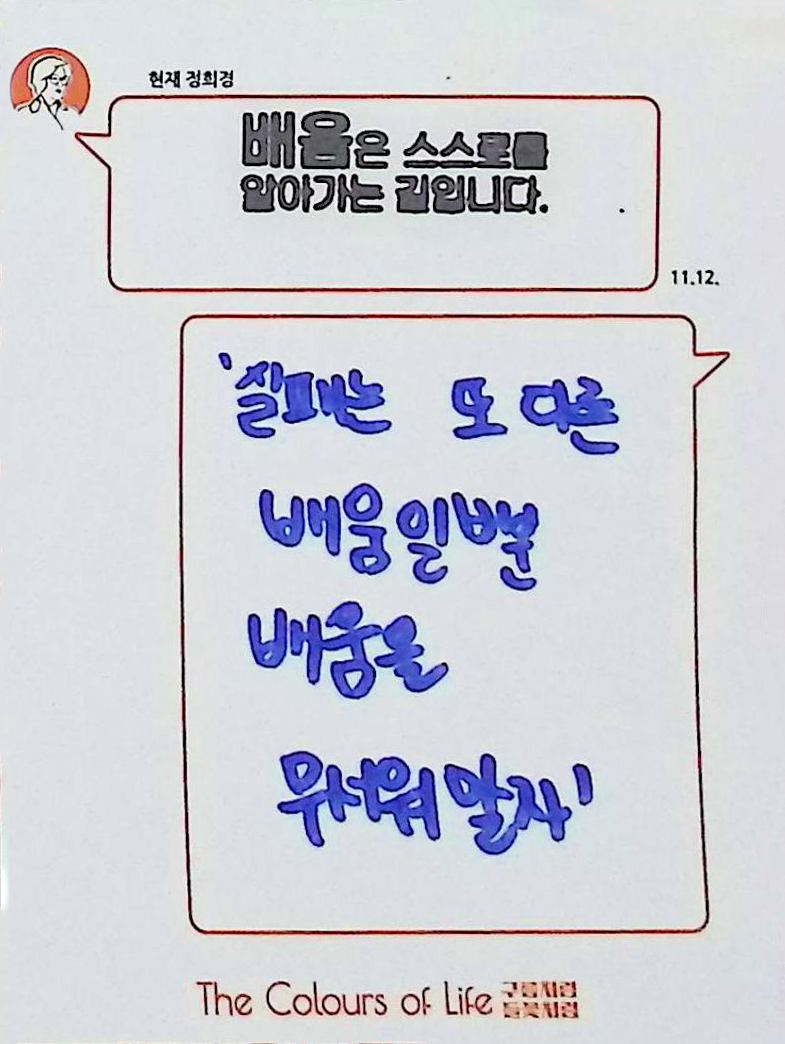 현재 정희경
배움은 스스로를
알아가는 길입니다.
11.12.
'실패는 또 다른
배움일뿐
배움을
무서워 말자'
The Colours of Life 구름처럼
들꽃처럼